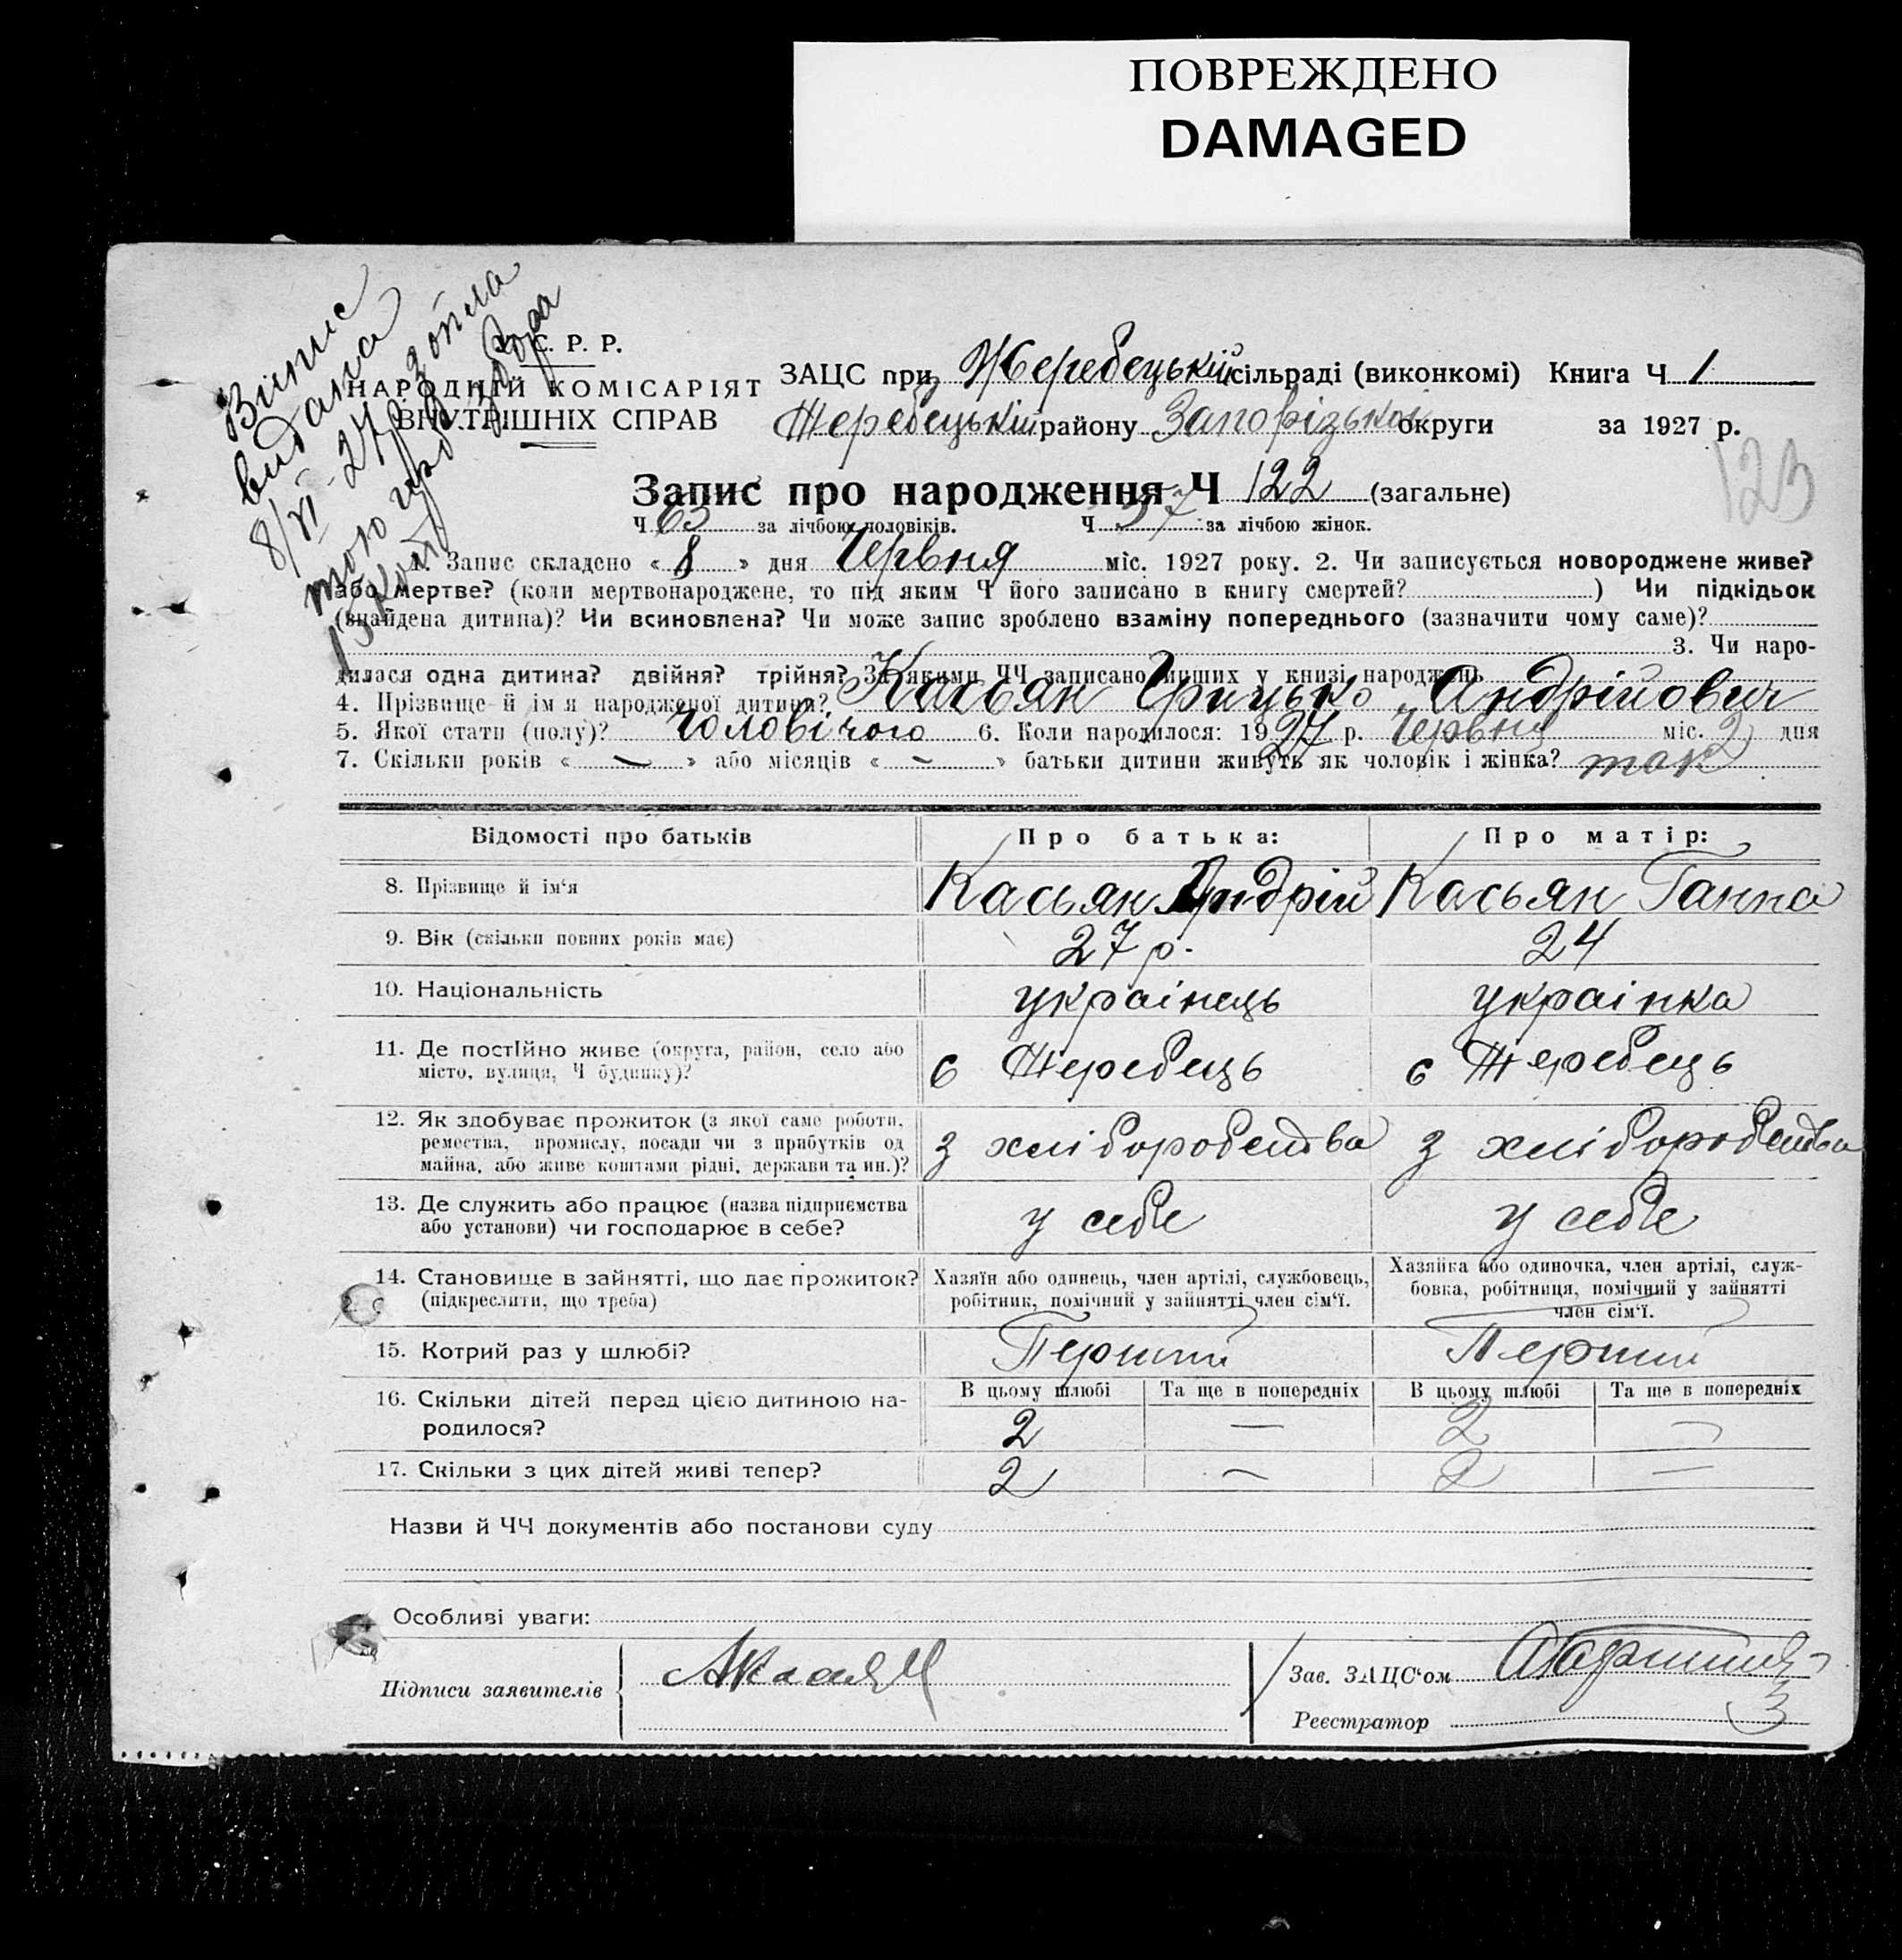 ПОВРЕЖДЕНО
DAMAGED
Випис
видана
8/VI-27 р.
С. Р. Р.
НАРОДНІЙ КОМІСАРІЯТ
ВНУТРІШНІХ СПРАВ
ЗАЦС при Жеребецькій сільраді (виконкомі) Книга Ч 1
Жеребецький району Запорізької округи за 1927 р.
123
Запис про народження Ч 122 (загальне)
Ч 65 за лічбою чоловіків. Ч 57 за лічбою жінок.
1. Запис складено « 8 » дня Червня міс. 1927 року. 2. Чи записується новороджене живе?
або мертве? (коли мертвонароджене, то під яким Ч його записано в книгу смертей? ) Чи підкідьок
(знайдена дитина)? Чи всиновлена? Чи може запис зроблено взаміну попереднього (зазначити чому саме)?
3. Чи наро-
дилася одна дитина? двійня? трійня? За якими ЧЧ записано инших у книзі народжень
4. Прізвище й ім'я народженої дитини? Касьян Грицько Андрійович
5. Якої стати (полу)? чоловічого 6. Коли народилося: 1927 р. Червня міс. 2 дня
7. Скільки років « — » або місяців « — » батьки дитини живуть як чоловік і жінка? так
Відомості про батьків Про батька: Про матір:
8. Прізвище й ім'я Касьян Андрій Касьян Ганна
9. Вік (скільки повних років має) 27 р. 24
10. Національність украінець украінка
11. Де постійно живе (округа, район, село або
місто, вулиця, Ч будинку)? с Жеребець с Жеребець
12. Як здобуває прожиток (з якої саме роботи,
ремества, промислу, посади чи з прибутків од
майна, або живе коштами рідні, держави та ин.)? з хліборобства з хліборобства
13. Де служить або працює (назва підприємства
або установи) чи господарює в себе? у себе у себе
14. Становище в зайнятті, що дає прожиток?
(підкреслити, що треба)
Хазяїн або одинець, член артілі, службовець,
робітник, помічний у зайнятті член сім'ї.
Хазяйка або одиночка, член артілі, служ-
бовка, робітниця, помічний у зайнятті
член сім'ї.
15. Котрий раз у шлюбі? Перший Перший
16. Скільки дітей перед цією дитиною на-
родилося?
В цьому шлюбі Та ще в попередніх В цьому шлюбі Та ще в попередніх
2 — 2 —
17. Скільки з цих дітей живі тепер? 2 — 2 —
Назви й ЧЧ документів або постанови суду
Особливі уваги:
Підписи заявителів
Зав. ЗАЦС'ом
Реєстратор